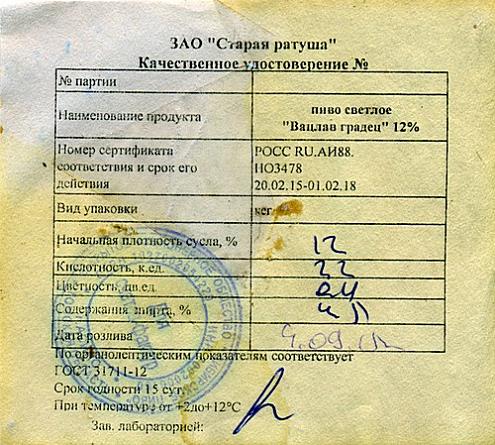 ЗАО "Старая ратуша"
Качественное удостоверение №
№ партии
Наименование продукта
пиво светлое
"Вацлав градец" 12%
Номер сертификата
соответствия и срок его
действия
РОСС RU.АИ88.
НО3478
20.02.15-01.02.18
Вид упаковки
кег
Начальная плотность сусла, %
12
Кислотность, к.ед.
22
Цветность, цв.ед.
Содержания спирта, %
Дата розлива
По органолептическим показателям соответствует
ГОСТ 31711-12
Срок годности 15 сут.
При температуре от +2до+12°С
Зав. лабораторией: